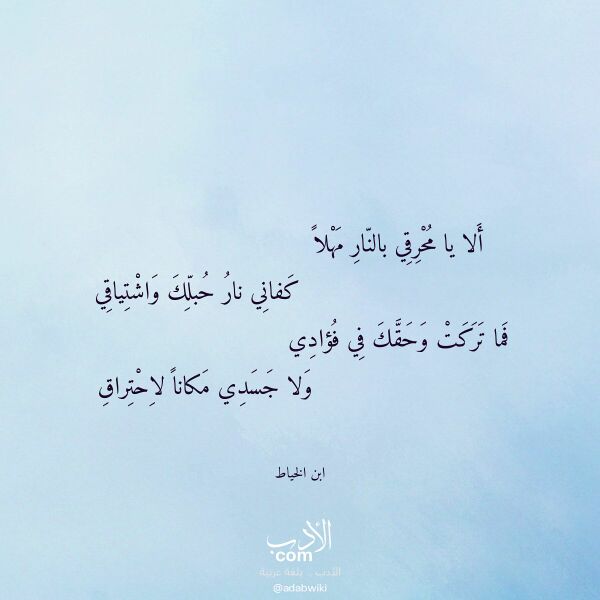 أَلا يا مُحْرِقِي بالنّارِ مَهْلاً
كَفانِي نارُ حُبلِّكَ وَاشْتِياقِي
فَما تَرَكَتْ وَحَقَّكَ فِي فُؤادِي
وَلا جَسَدِي مَكاناً لاِحْتِراقِ
ابن الخياط
الأدب
com
الأدب .. بلغة عربية
@adabwiki